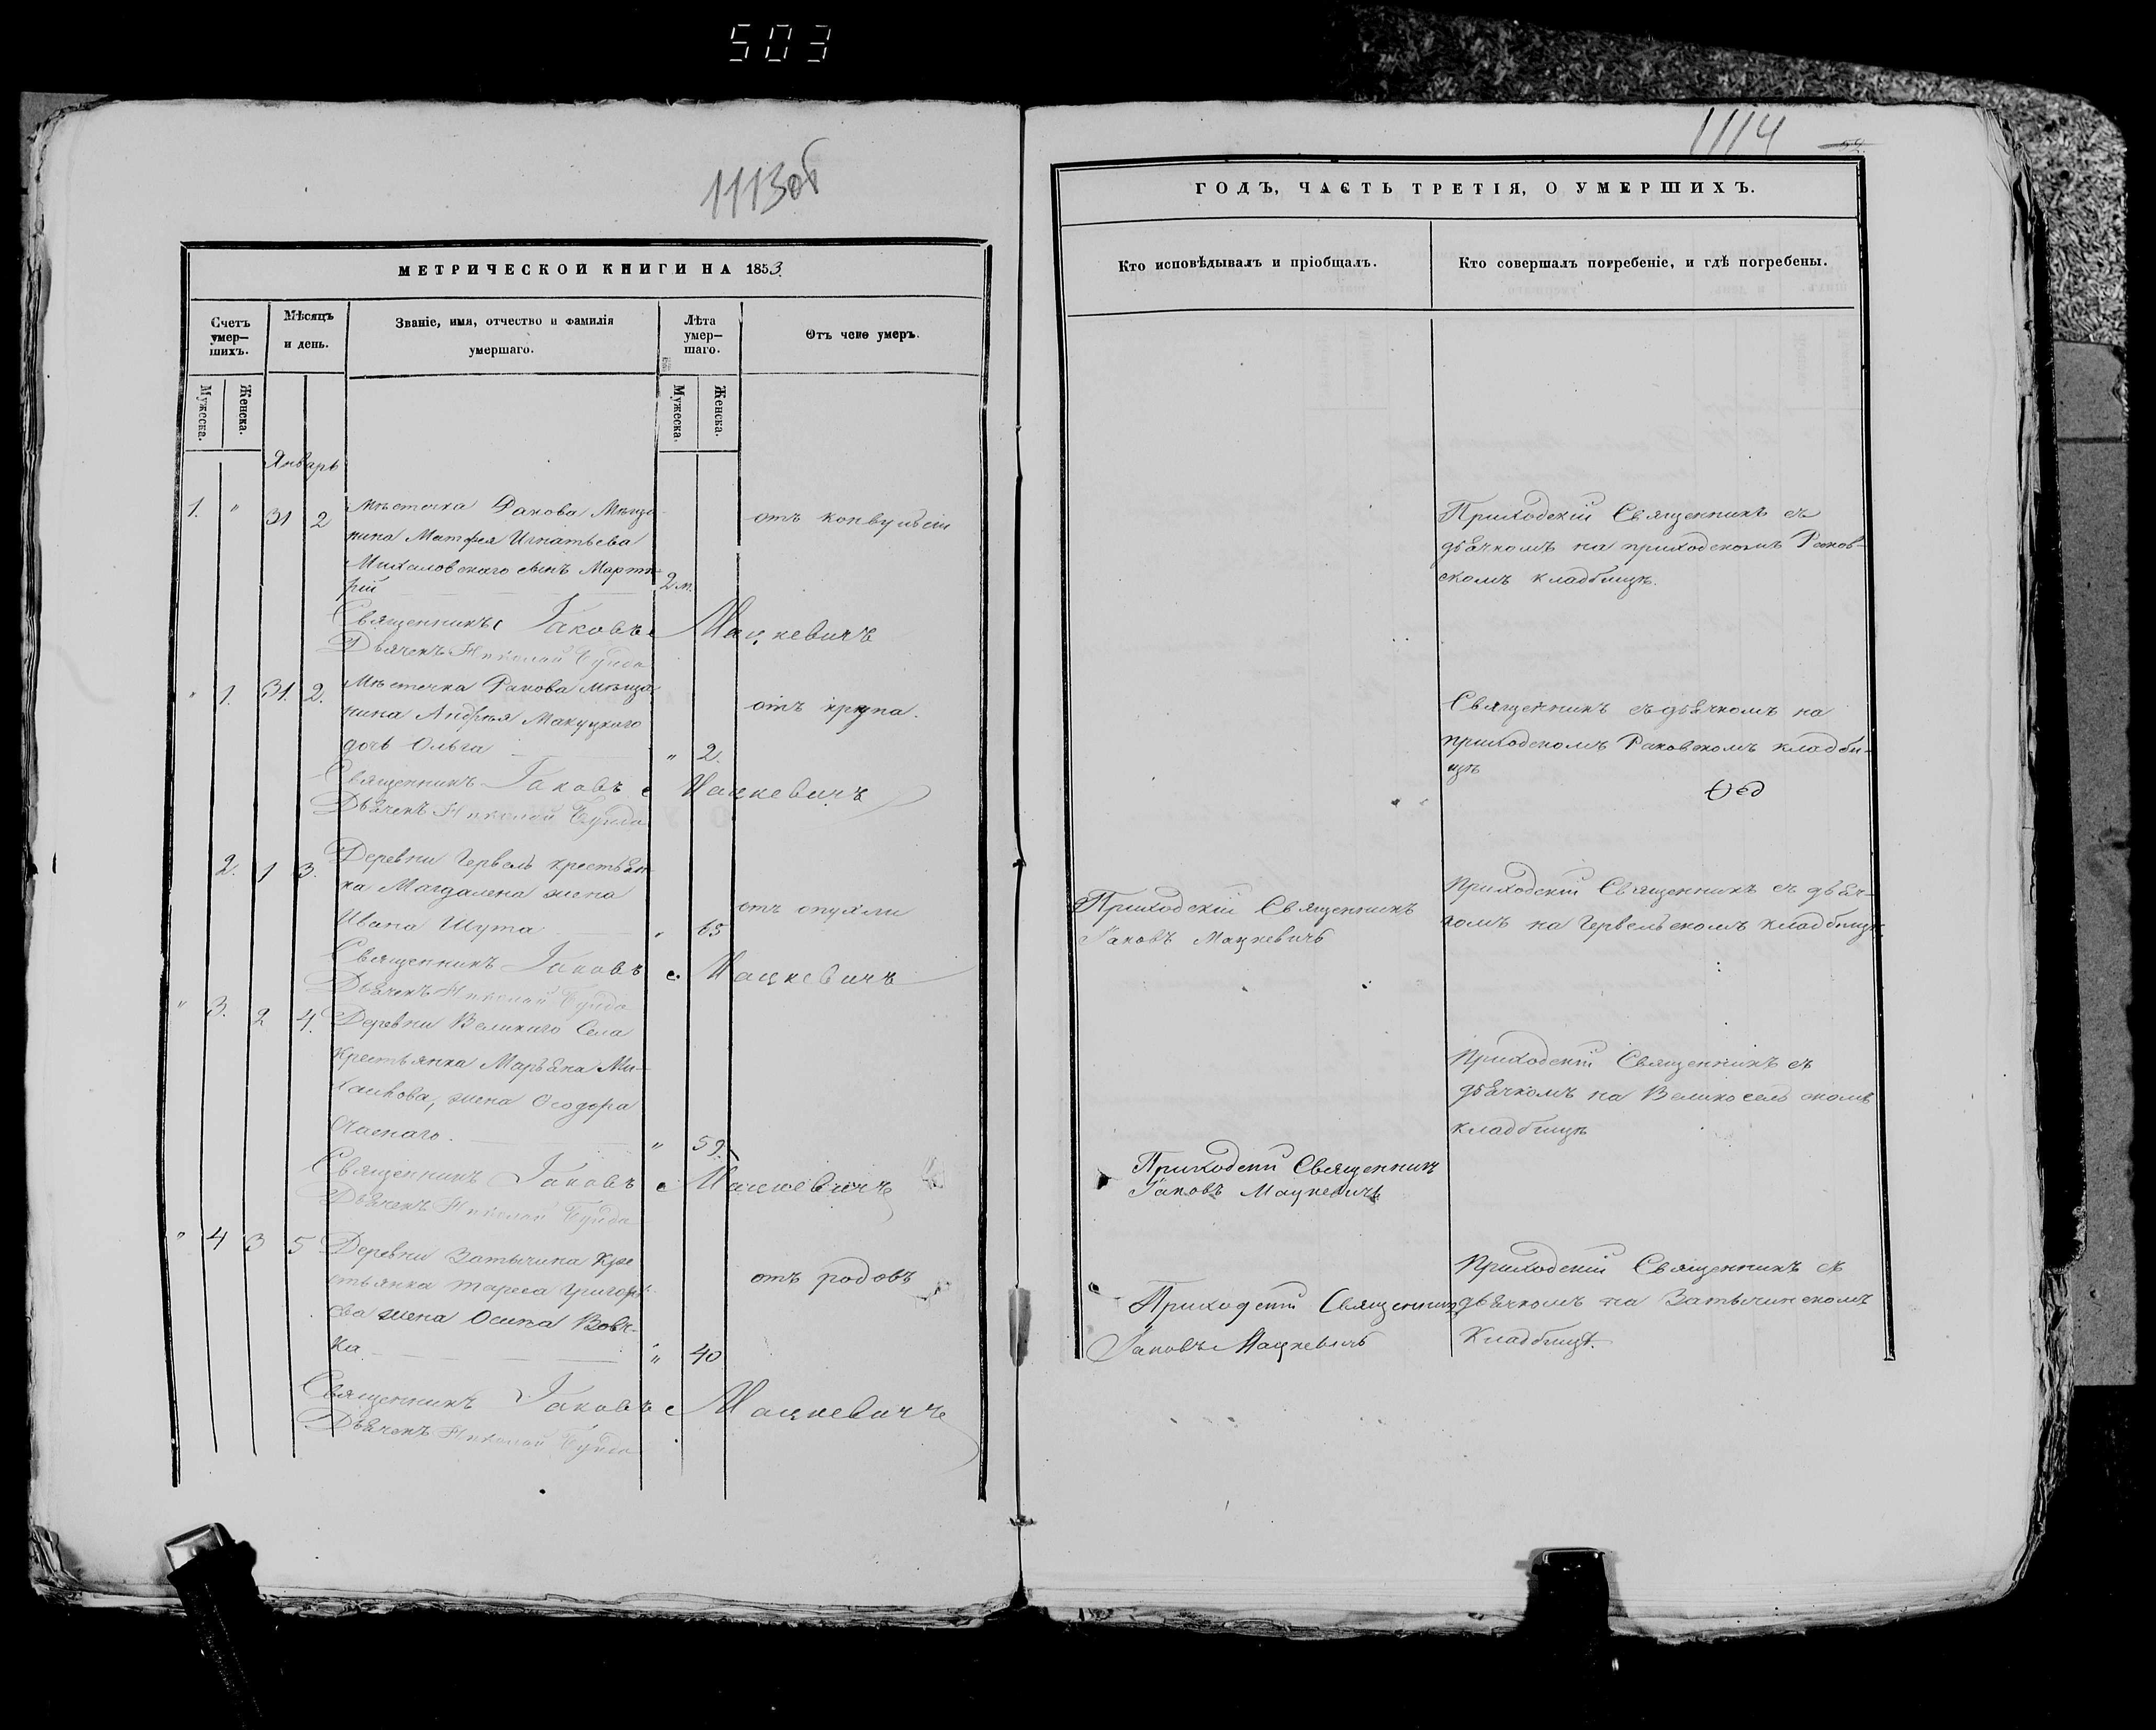 503
1113об
МЕТРИЧЕСКОЙ КНИГИ НА 1853
Счетъ умер-шихъ.
Мѣсяцъ и день.
Званіе, имя, отчество и фамилія
умершаго.
Лѣта умер-шаго.
Отъ чего умеръ.
Мужеска.
Женска.
Мужеска.
Женска.
Январь
1. " 31 2 Мѣстечка Ракова Мѣща-
нина Матфея Игнатьева
Михаловскаго сынъ Марти-
рій 2 м.
отъ конвульсіи
Священникъ Іаковъ Мацкевичъ
Дьячекъ Николай
" 1. 31. 2. Мѣстечка Ракова мѣща-
нина Андрея Макуцкого
дочь Ольга " 2.
отъ крупа.
Священникъ Іаковъ Мацкевичъ
Дьячекъ Николай
2. 1 3. Деревни Гервель крестьян-
ка Магдалена жена
Ивана Шута " 65
отъ опухли
Священникъ Іаковъ Мацкевичъ
Дьячекъ Николай
" 3. 2 4. Деревни Великаго Села
Крестьянка Марьяна Ми-
хайлова, жена Ѳеодора
" 59.
Священникъ Іаковъ Мацкевичъ
Дьячекъ Николай
" 4 3 5 Деревни Затычина Кре
стьянка Тареса Григорь
ева жена Осипа Вовч-
ка " 40
отъ родовъ
Священникъ Іаковъ Мацкевичъ
Дьячекъ Николай
1114
52.
ГОДЪ, ЧАСТЬ ТРЕТІЯ, О УМЕРШИХЪ.
Кто исповѣдывалъ и пріобщалъ.
Кто совершалъ погребеніе, и гдѣ погребены.
Приходскій Священникъ съ
дьячкомъ на приходскомъ Раков-
скомъ кладбищѣ.
Священникъ съ дьячкомъ на
приходскомъ Раковскомъ кладби-
щѣ
Приходскій Священникъ
Іаковъ Мацкевичъ
Приходскій Священникъ съ дьяч-
комъ на Гервельскомъ кладбищѣ
Приходскій Священникъ съ
дьячкомъ на Великосельскомъ
кладбищѣ
Приходскій Священникъ
Іаковъ Мацкевичъ
Приходскій Священникъ съ
дьячкомъ на Затычинскомъ
Кладбищѣ.
Приходскій Священникъ
Іаковъ Мацкевичъ